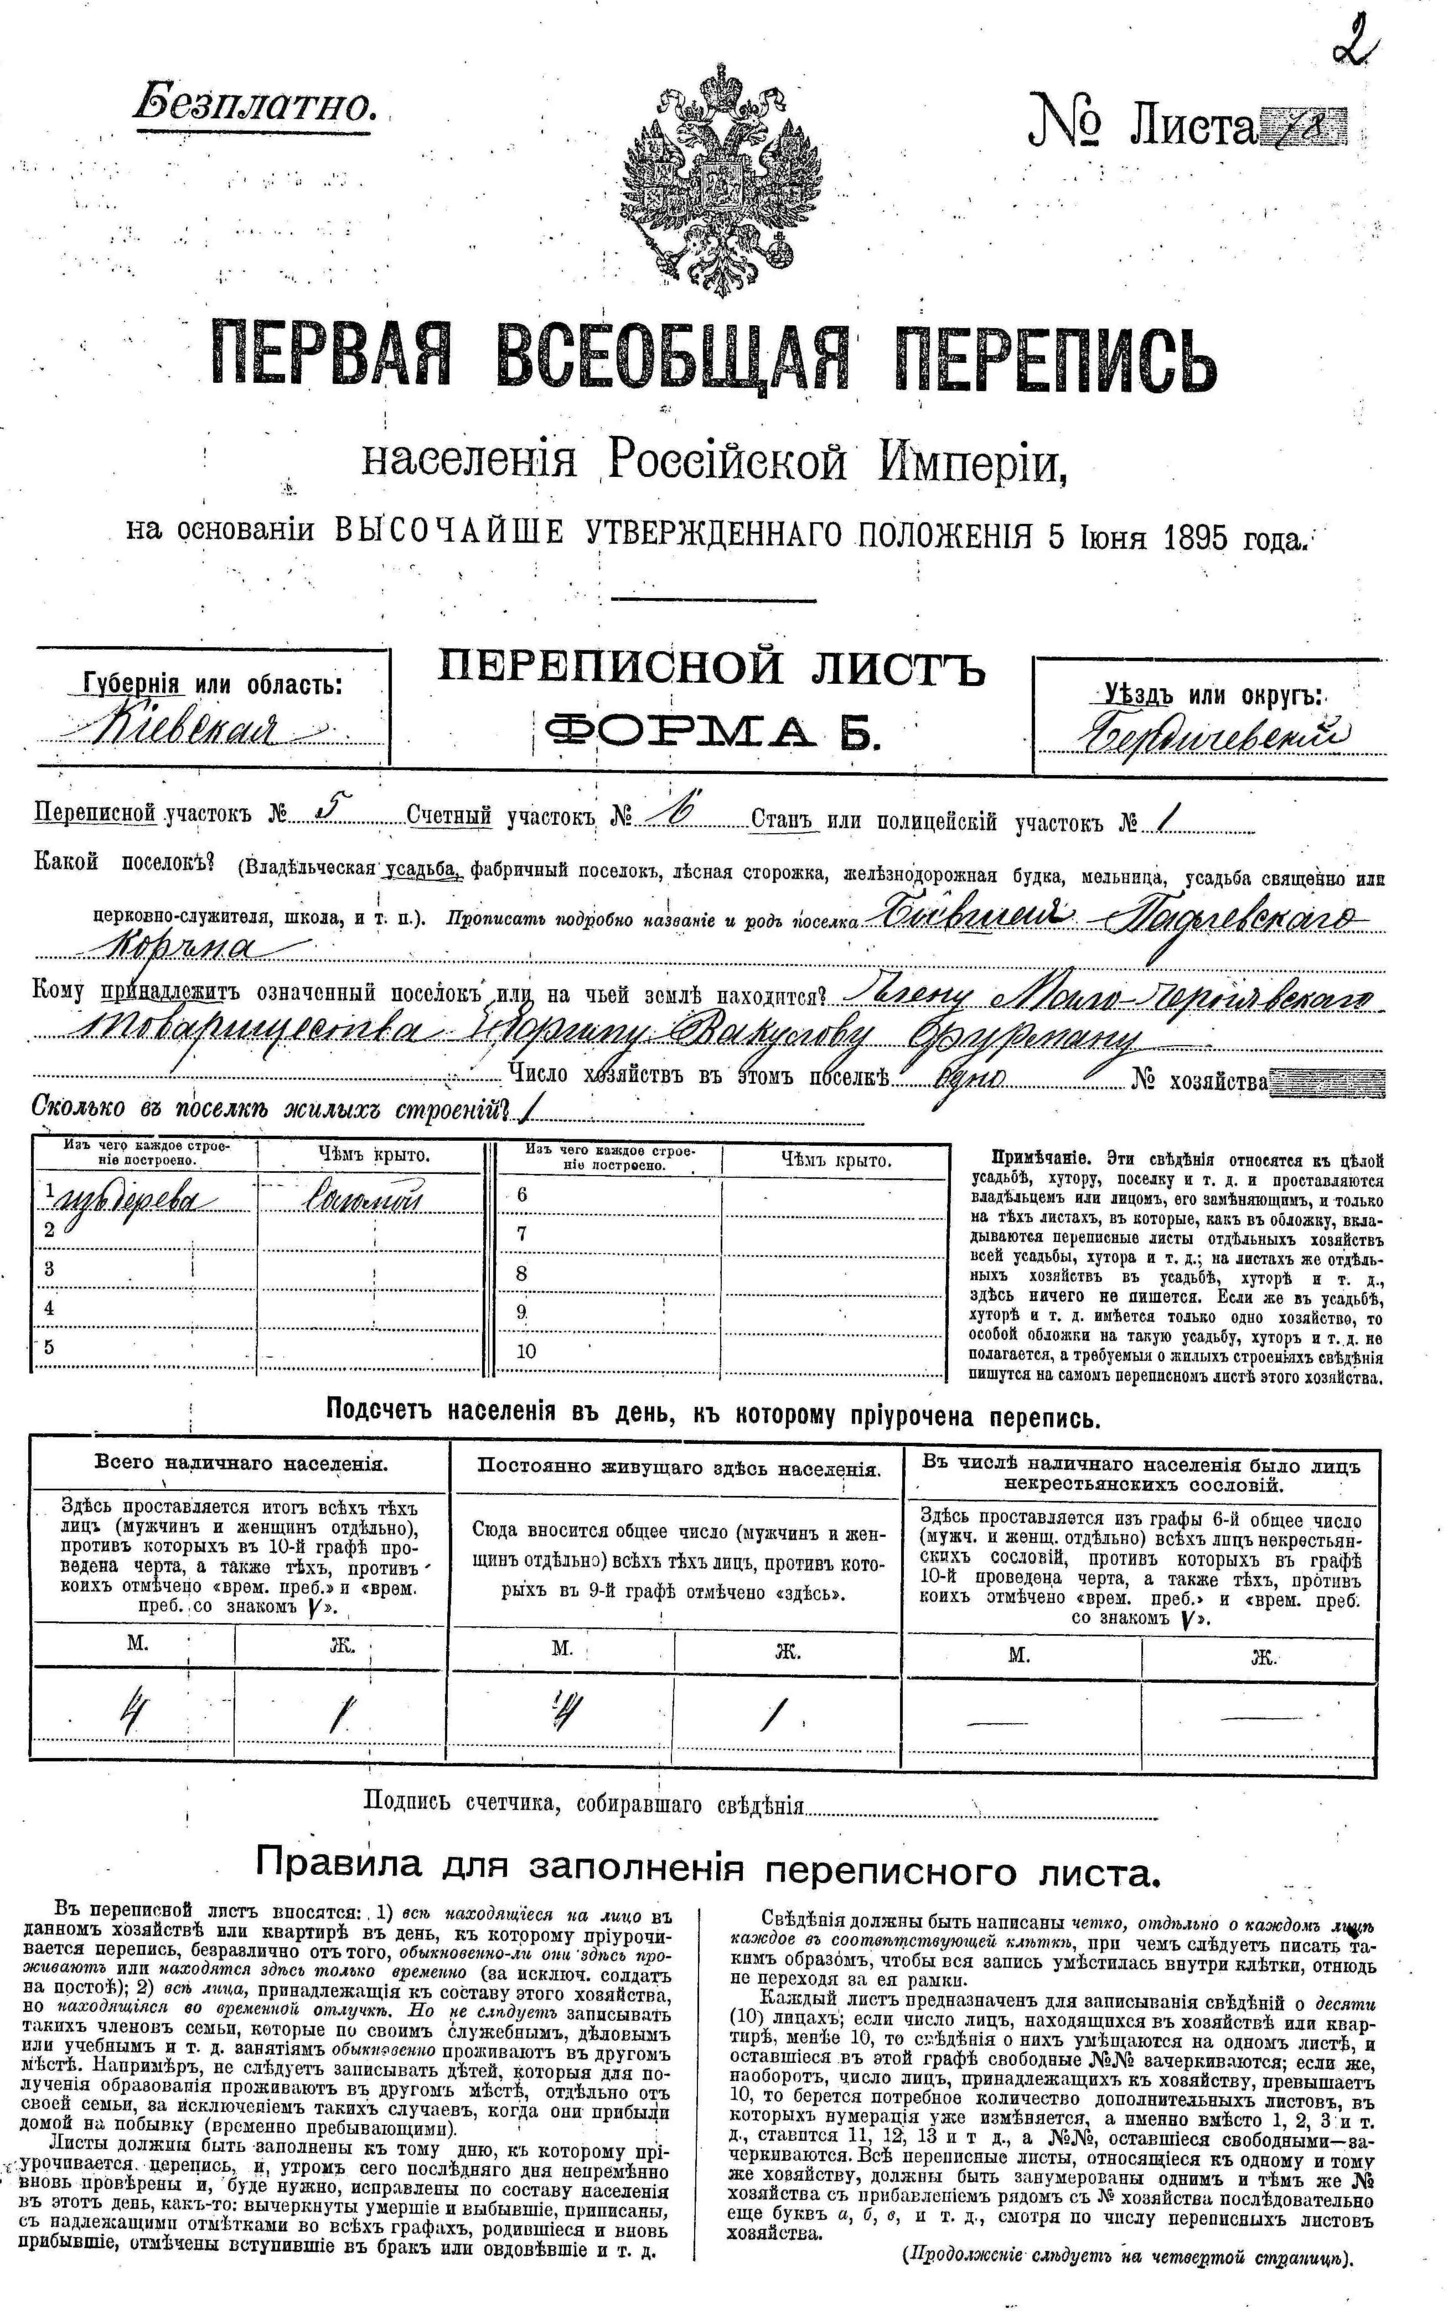 2
Безплатно.
№ Листа 78
ПЕРВАЯ ВСЕОБЩАЯ ПЕРЕПИСЬ
населенія Россійской Имперіи,
на основаніи ВЫСОЧАЙШЕ УТВЕРЖДЕННАГО ПОЛОЖЕНІЯ 5 Іюня 1895 года.
Губернія или область:
Кіевская
ПЕРЕПИСНОЙ ЛИСТЪ
ФОРМА Б.
Уѣздъ или округъ:
Бердичевскій
Переписной участокъ № 5 Счетный участокъ № Станъ или полицейскій участокъ № 1
Какой поселокъ? (Владѣльческая усадьба, фабричный поселокъ, лѣсная сторожка, желѣзнодорожная будка, мельница, усадьба священно или
церковно-служителя, школа, и т. п.). Прописать подробно названіе и родъ поселка Бывшая
Корчма
Кому принадлежитъ означенный поселокъ или на чьей землѣ находится? Члену
товарищества Вакулову Фурману
Число хозяйствъ въ этомъ поселкѣ одно № хозяйства
Сколько въ поселкѣ жилыхъ строеній? 1
Изъ чего каждое строе-
ніе построено.
Чѣмъ крыто.
Изъ чего каждое строе-
ніе построено.
Чѣмъ крыто.
1 изъ дерева соломой 6
2 7
3 8
4 9
5 10
Примѣчаніе. Эти свѣдѣнія относятся къ цѣлой
усадьбѣ, хутору, поселку и т. д. и проставляются
владѣльцемъ или лицомъ, его замѣняющимъ, и только
на тѣхъ листахъ, въ которые, какъ въ обложку, вкла-
дываются переписные листы отдѣльныхъ хозяйствъ
всей усадьбы, хутора и т. д.; на листахъ же отдѣль-
ныхъ хозяйствъ въ усадьбѣ, хуторѣ и т. д.,
здѣсь ничего не пишется. Если же въ усадьбѣ,
хуторѣ и т. д. имѣется только одно хозяйство, то
особой обложки на такую усадьбу, хуторъ и т. д. не
полагается, а требуемыя о жилыхъ строеніяхъ свѣдѣнія
пишутся на самомъ переписномъ листѣ этого хозяйства.
Подсчетъ населенія въ день, къ которому пріурочена перепись.
Всего наличнаго населенія.
Здѣсь проставляется итогъ всѣхъ тѣхъ
лицъ (мужчинъ и женщинъ отдѣльно),
противъ которыхъ въ 10-й графѣ про-
ведена черта, а также тѣхъ, противъ
коихъ отмѣчено «врем. преб.» и «врем.
преб. со знакомъ V».
Постоянно живущаго здѣсь населенія.
Сюда вносится общее число (мужчинъ и жен-
щинъ отдѣльно) всѣхъ тѣхъ лицъ, противъ кото-
рыхъ въ 9-й графѣ отмѣчено «здѣсь».
Въ числѣ наличнаго населенія было лицъ
некрестьянскихъ сословій.
Здѣсь проставляется изъ графы 6-й общее число
(мужч. и женщ. отдѣльно) всѣхъ лицъ некрестьян-
скихъ сословій, противъ которыхъ въ графѣ
10-й проведена черта, а также тѣхъ, противъ
коихъ отмѣчено «врем. преб.» и «врем. преб.
со знакомъ V».
М. Ж. М. Ж. М. Ж.
4 1 4 1 — —
Подпись счетчика, собиравшаго свѣдѣнія
Правила для заполненія переписного листа.
Въ переписной листъ вносятся: 1) всѣ находящіеся на лицо въ
данномъ хозяйствѣ или квартирѣ въ день, къ которому пріурочи-
вается перепись, безразлично отъ того, обыкновенно-ли они здѣсь про-
живаютъ или находятся здѣсь только временно (за исключ. солдатъ
на постоѣ); 2) всѣ лица, принадлежащія къ составу этого хозяйства,
но находящіяся во временной отлучкѣ. Но не слѣдуетъ записывать
такихъ членовъ семьи, которые по своимъ служебнымъ, дѣловымъ
или учебнымъ и т. д. занятіямъ обыкновенно проживаютъ въ другомъ
мѣстѣ. Напримѣръ, не слѣдуетъ записывать дѣтей, которыя для по-
лученія образованія проживаютъ въ другомъ мѣстѣ, отдѣльно отъ
своей семьи, за исключеніемъ такихъ случаевъ, когда они прибыли
домой на побывку (временно пребывающими).
Листы должны быть заполнены къ тому дню, къ которому прі-
урочивается перепись, и, утромъ сего послѣдняго дня непремѣнно
вновь провѣрены и, буде нужно, исправлены по составу населенія
въ этотъ день, какъ-то: вычеркнуты умершіе и выбывшіе, приписаны,
съ надлежащими отмѣтками во всѣхъ графахъ, родившіеся и вновь
прибывшіе, отмѣчены вступившіе въ бракъ или овдовѣвшіе и т. д.
Свѣдѣнія должны быть написаны четко, отдѣльно о каждомъ лицѣ
каждое въ соотвѣтствующей клѣткѣ, при чемъ слѣдуетъ писать та-
кимъ образомъ, чтобы вся запись умѣстилась внутри клѣтки, отнюдь
не переходя за ея рамки.
Каждый листъ предназначенъ для записыванія свѣдѣній о десяти
(10) лицахъ; если число лицъ, находящихся въ хозяйствѣ или квар-
тирѣ, менѣе 10, то свѣдѣнія о нихъ умѣщаются на одномъ листѣ, и
оставшіеся въ этой графѣ свободные №№ зачеркиваются; если же,
наоборотъ, число лицъ, принадлежащихъ къ хозяйству, превышаетъ
10, то берется потребное количество дополнительныхъ листовъ, въ
которыхъ нумерація уже измѣняется, а именно вмѣсто 1, 2, 3 и т.
д., ставится 11, 12, 13 и т д., а №№, оставшіеся свободными—за-
черкиваются. Всѣ переписные листы, относящіеся къ одному и тому
же хозяйству, должны быть занумерованы однимъ и тѣмъ же №
хозяйства съ прибавленіемъ рядомъ съ № хозяйства послѣдовательно
еще буквъ а, б, в, и т. д., смотря по числу переписныхъ листовъ
хозяйства.
(Продолженіе слѣдуетъ на четвертой страницѣ).